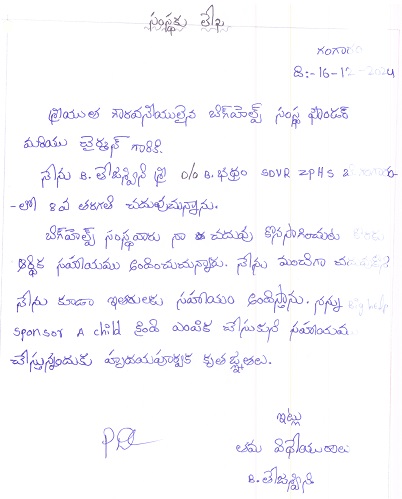 సంస్థకు లేఖ
గంగారం
ది:-16-12-2024
శ్రీయుత గౌరవనీయులైన బిగ్‌హెల్ప్ సంస్థ ఫౌండర్
మరియు చైర్మన్ గారికి
నేను B. తేజస్విని శ్రీ D/o B. భద్రం SDVR ZPHS
-లో 8వ తరగతి చదువుచున్నాను.
బిగ్‌హెల్ప్ సంస్థవారు నా చదువు కొనసాగించుటకు
ఆర్థిక సహాయము అందించుచున్నారు. నేను మంచిగా
నేను కూడా ఇతరులకు సహాయం అందిస్తాను. నన్ను Big help
sponsor A child క్రింద ఎంపిక చేసుకుని సహాయం
చేస్తున్నందుకు హృదయపూర్వక కృతజ్ఞతలు.
ఇట్లు
తమ విధేయురాలు
B. తేజస్విని